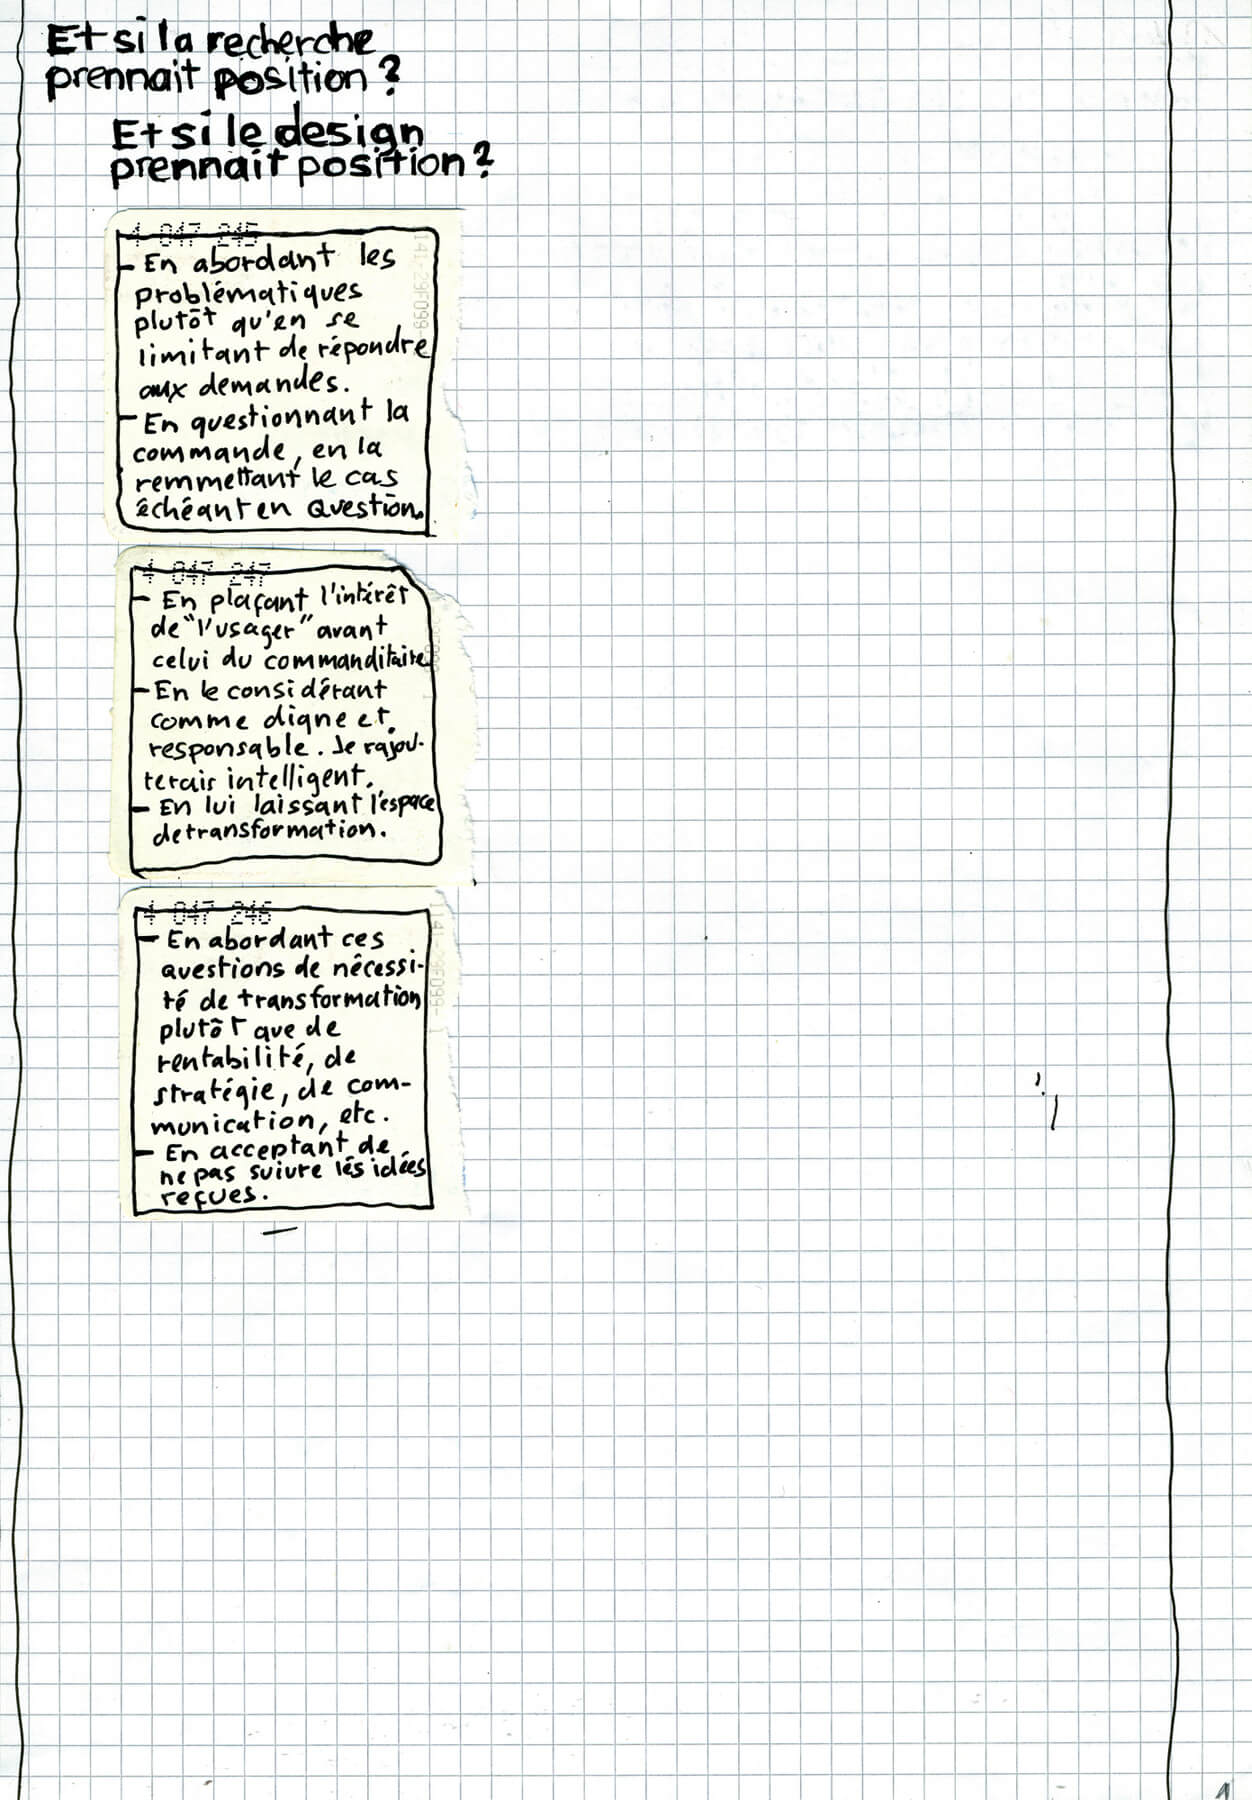 Et si la recherche
prennait position ?
Et si le design
prennait position ?
4 047 245
- En abordant les
problématiques
plutôt qu'en se
limitant de répondre
aux demandes.
- En questionnant la
commande, en la
remmettant le cas
échéant en question.
4 047 247
- En plaçant l'intérêt
de "l'usager" avant
celui du commanditaire
- En le considérant
comme digne et
responsable. Je rajou-
terais intelligent.
- En lui laissant l'espace
de transformation.
4 047 246
- En abordant ces
questions de nécessi-
té de transformation
plutôt que de
rentabilité, de
stratégie, de com-
munication, etc.
- En acceptant de
ne pas suivre les idées
reçues.